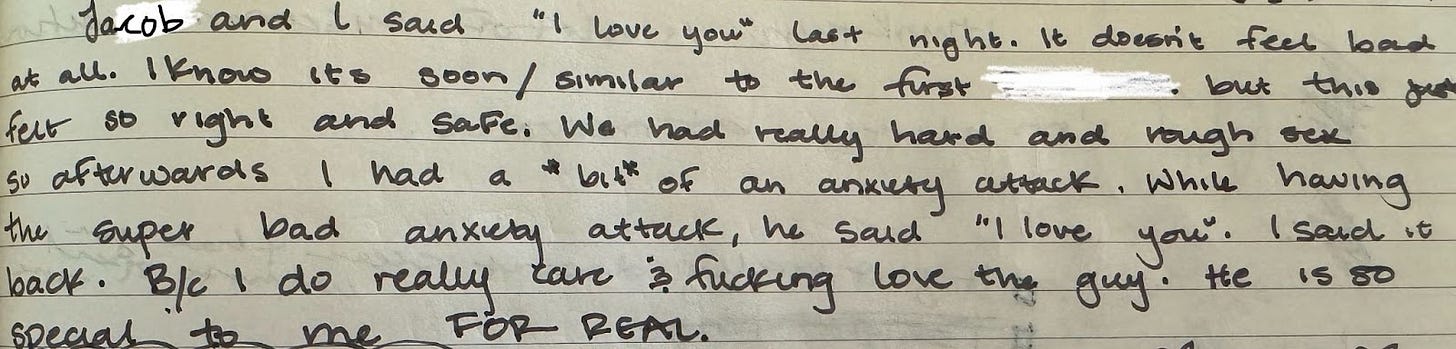 Jacob and I said "I love you" last night. It doesn't feel bad
at all. I know its soon/similar to the first . but this just
felt so right and safe. We had really hard and rough sex
so afterwards I had a *bit* of an anxiety attack. While having
the super bad anxiety attack, he said "I love you". I said it
back. B/c I do really care & fucking love the guy. He is so
special to me FOR REAL.